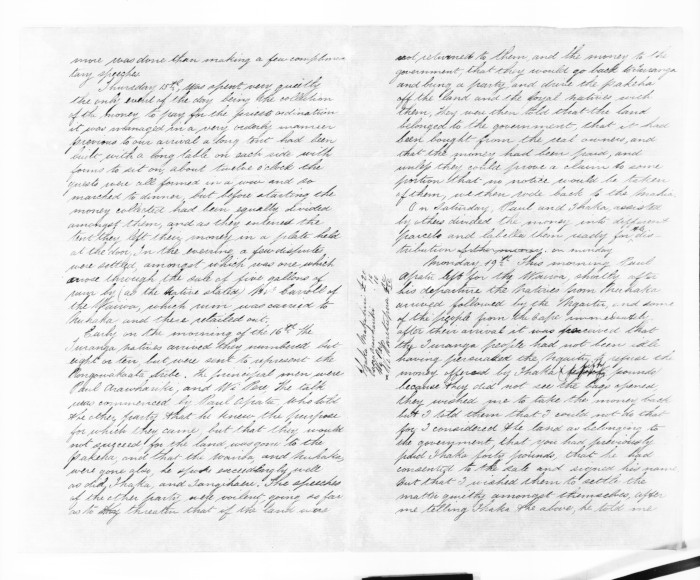 more was done than making a few complimen
tary speeches
Thursday 15th, was spent very quietly
the only event of the day being the collection
of the money to pay for the priests ordination
it was managed in a very orderly manner
previous to our arrival a long tent had been
built with a long table on each side with
forms to sit on, about twelve o'clock the
guests were all formed in a row and so
marched to dinner, but before starting the
money collected had been equally divided
amongst them, and as they entered the
tent they left their money in a plate held
at the door. In the evening a few disputes
were settled, amongst which was one, which
arose through the sale of five gallons of
rum by (as the native stated) Mr Carroll of
the Wairoa, which rum was carried to
Nuhaka and there retailed out.
Early in the morning of the 16th the
Turanga natives arrived they numbered but
eight or ten but were sent to represent the
tribe. The principal men were
Paul and Wi Pere. The talk
was commenced by Paul Apatu who told
the other party that he knew the purpose
for which they came, but that they would
not succeed for the land was gone to the
pakeha, and that the Wairoa and Nuhaka
were gone also, he spoke exceedingly well
as did, Ihaka, and The speeches
of the other party were violent going so far
as to threaten that if the land were
not returned to them, and the money to the
government, that they would go back to Turanga
and bring a party, and drive the pakeha
off the land and the loyal natives with
them, they were then told that the land
belonged to the government, that it had
been bought from the real owners, and
that the money had been paid, and
unless they could prove a claim to some
portion that no notice would be taken
of them, we then rode back to the
On Saturday Paul and Ihaka, assisted
by others divided the money into different
parcels and labelled them ready for dis
tribution on monday
Monday 19th. This morning Paul
Apatu left for the Wairoa, shortly after
his departure the natives from Nuhaka
arrived followed by the and some
of the people from the Cape immediately
after their arrival it was perceived that
the Turanga people had not been idle
having persuaded the to refuse the
money offered by Ihaka pounds
because they did not see the bags opened
they wished me to take the money back
but I told them that I could not do that
for I considered the land as belonging to
the government, that you had previously
paid Ihaka forty pounds, that he had
consented to the sale and signed his name
but that I wished them to settle the
matter quietly amongst themselves, after
me telling Ihaka the above, he told me